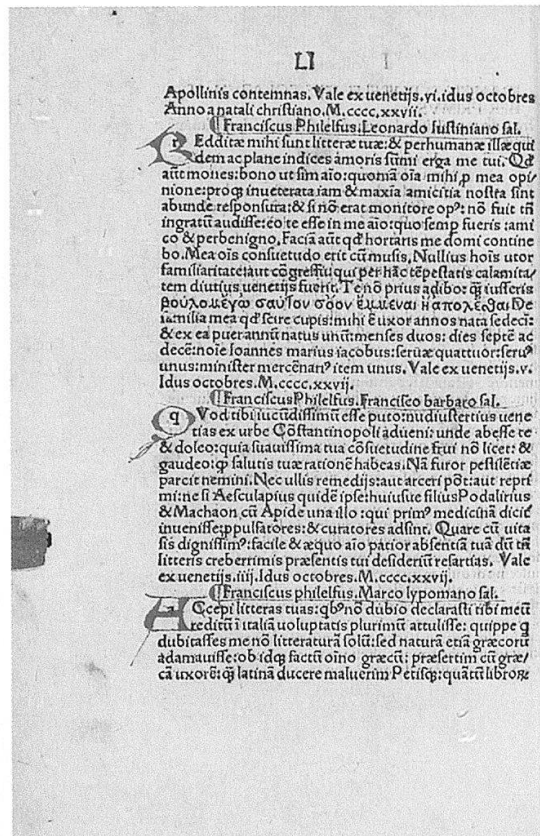 LI I
Apollinis contemnas. Vale ex uenetijs. vi. idus octobres
Anno a natali christiano. M.cccc.xxvii.
¶ Franciscus Philelfus. Leonardo Iustiniano sal.
r Edditæ mihi sunt litteræ tuæ: & perhumanæ illæ qui
dem ac plane indices amoris sūmi erga me tui. Qd
aūt mones: bono ut sim aīo: quoniā oīa mihi p mea opi-
nione: proq̄ inueterata iam & maxīa amicitia nostra sint
abunde responsura: & si nō erat monitore opꝰ: nō fuit tn̄
ingratū audisse: eo te esse in me aīo: quo semp fueris: ami
co & perbenigno. Faciā aūt qd hortaris me domi contine
bo. Mea oīs consuetudo erit cū musis. Nullius hoīs utor
familiaritate: aut cōgressu qui per hāc tēpestatis calamita/
tem diutius uenetijs fuerit. Te nō prius adibo: q̄ iusseris
βούλομ ἐγὼ σαὺτον σόον ἔμμεναι ἢ απολέσθαι De
familia mea qd scire cupis: mihi ē uxor annos nata sedecī:
& ex ea puer annū natus unū: menses duos: dies septē ac
decē: noīe Ioannes marius iacobus: seruæ quattuor: seruꝰ
unus: minister mercēnariꝰ item unus. Vale ex uenetijs. v.
Idus octobres. M.cccc.xxvij.
¶ Franciscus Philelfus. Francisco barbaro sal.
q Vod tibi iucūdissimū esse puto: nudiustertius uene
tias ex urbe Cōstantinopoli adueni: unde abesse te
& doleo: quia suauissima tua cōsuetudine frui nō licet: &
gaudeo: q̄ salutis tuæ rationē habeas. Nā furor pestilētiæ
parcit nemini. Nec ullis remedijs: aut arceri pōt: aut repri
mi: ne si Aesculapius quidē ipse: huiusue filius Podalirius
& Machaon cū Apide una illo: qui primꝰ medicinā dicit̄
inuenisse: ppulsatores: & curatores adsint. Quare cū uita
sis dignissimꝰ: facile & æquo aīo patior absentiā tuā dū tn̄
litteris creberrimis præsentis tui desideriū resartias. Vale
ex uenetijs. iiij. Idus octobres. M.cccc.xxvij.
¶ Franciscus philelfus. Marco lypomano sal.
a Ccepi litteras tuas: qbꝰ nō dubio declarasti tibi meū
reditū ī italiā uoluptatis plurimū attulisse: quippe q
dubitasses me nō litteraturā solū: sed naturā etiā græcorū
adamauisse: ob idq̄ factū oīno græcū: præsertim cū græ/
cā uxorē: q̄ latinā ducere maluerim Petisq̄: quātū libroꝝ